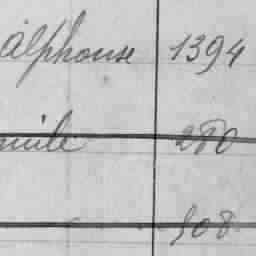 Alphonse 1394
mile 280
908